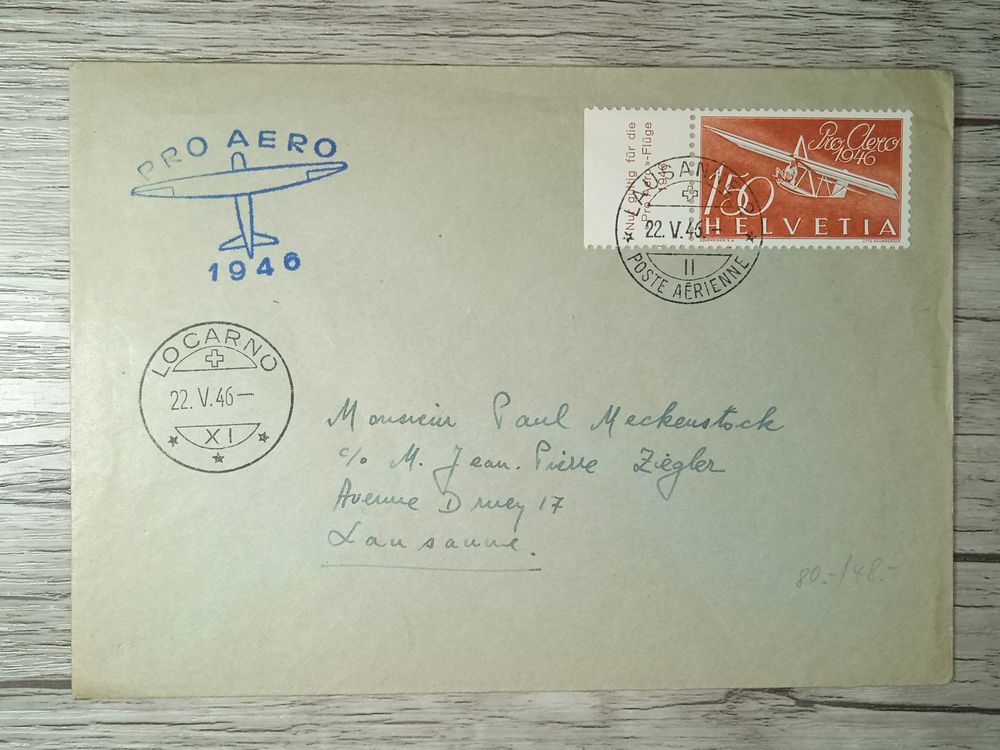 PRO AERO
1946
Nur gültig für die
«Pro Aero»-Flüge
1946
Pro Aero
1946
150
HELVETIA
COURVOISIER S.A. OTTO BAUMBERGER
LAUSANNE
22.V.46–
II
POSTE AÉRIENNE
LOCARNO
22.V.46–
XI
Monsieur Paul Meckenstock
c/o M. Jean-Pierre Ziegler
Avenue Druey 17
Lausanne.
80.-/48.-